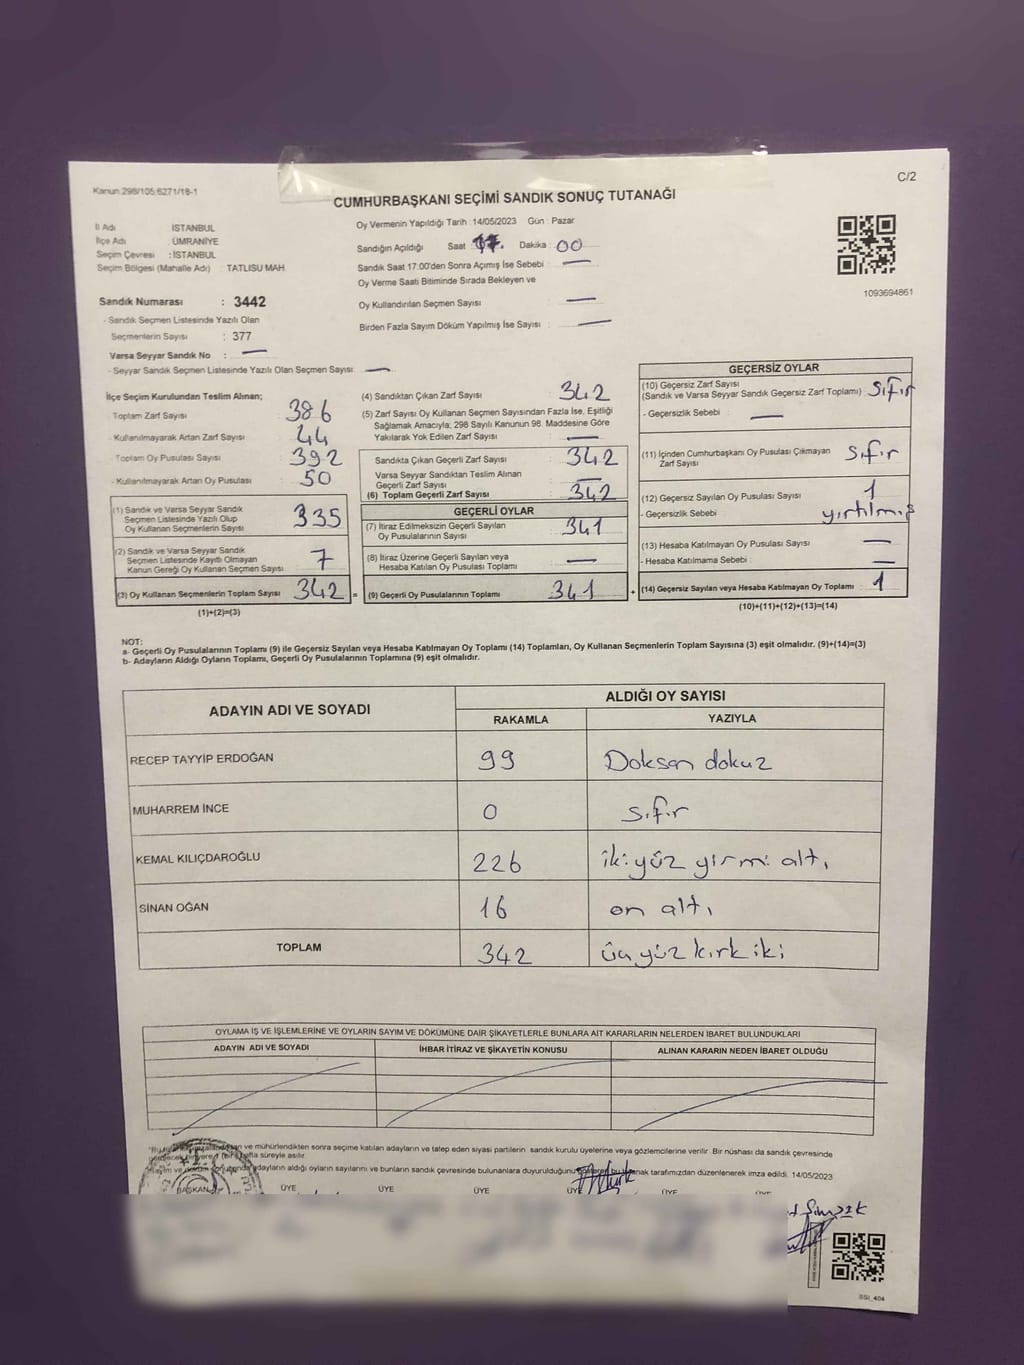 Kanun:298/105;6271/18-1
C/2
CUMHURBAŞKANI SEÇİMİ SANDIK SONUÇ TUTANAĞI
İl Adı İSTANBUL
İlçe Adı : ÜMRANİYE
Seçim Çevresi : İSTANBUL
Seçim Bölgesi (Mahalle Adı) : TATLISU MAH.
Sandık Numarası : 3442
- Sandık Seçmen Listesinde Yazılı Olan
Seçmenlerin Sayısı : 377
Varsa Seyyar Sandık No : —
- Seyyar Sandık Seçmen Listesinde Yazılı Olan Seçmen Sayısı : —
Oy Vermenin Yapıldığı Tarih : 14/05/2023 Gün : Pazar
Sandığın Açıldığı Saat : 17. Dakika : 00
Sandık Saat 17:00'den Sonra Açımış İse Sebebi : —
Oy Verme Saati Bitiminde Sırada Bekleyen ve
Oy Kullandırılan Seçmen Sayısı : —
Birden Fazla Sayım Döküm Yapılmış İse Sayısı : —
1093694861
İlçe Seçim Kurulundan Teslim Alınan;
Toplam Zarf Sayısı 386
- Kullanılmayarak Artan Zarf Sayısı 44
- Toplam Oy Pusulası Sayısı 392
- Kullanılmayarak Artan Oy Pusulası 50
(1) Sandık ve Varsa Seyyar Sandık
Seçmen Listesinde Yazılı Olup
Oy Kullanan Seçmenlerin Sayısı 335
(2) Sandık ve Varsa Seyyar Sandık
Seçmen Listesinde Kayıtlı Olmayan
Kanun Gereği Oy Kullanan Seçmen Sayısı : 7
(3) Oy Kullanan Seçmenlerin Toplam Sayısı 342 =
(1)+(2)=(3)
(4) Sandıktan Çıkan Zarf Sayısı 342
(5) Zarf Sayısı Oy Kullanan Seçmen Sayısından Fazla İse, Eşitliği
Sağlamak Amacıyla; 298 Sayılı Kanunun 98. Maddesine Göre
Yakılarak Yok Edilen Zarf Sayısı : —
Sandıkta Çıkan Geçerli Zarf Sayısı : 342
Varsa Seyyar Sandıktan Teslim Alınan
Geçerli Zarf Sayısı : —
(6) Toplam Geçerli Zarf Sayısı : 342
GEÇERLİ OYLAR
(7) İtiraz Edilmeksizin Geçerli Sayılan
Oy Pusulalarının Sayısı : 341
(8) İtiraz Üzerine Geçerli Sayılan veya
Hesaba Katılan Oy Pusulası Toplamı : —
(9) Geçerli Oy Pusulalarının Toplamı : 341 +
GEÇERSİZ OYLAR
(10) Geçersiz Zarf Sayısı
(Sandık ve Varsa Seyyar Sandık Geçersiz Zarf Toplamı) : Sıfır
- Geçersizlik Sebebi : —
(11) İçinden Cumhurbaşkanı Oy Pusulası Çıkmayan
Zarf Sayısı : Sıfır
(12) Geçersiz Sayılan Oy Pusulası Sayısı : 1
- Geçersizlik Sebebi : yırtılmış
(13) Hesaba Katılmayan Oy Pusulası Sayısı : —
- Hesaba Katılmama Sebebi : —
(14) Geçersiz Sayılan veya Hesaba Katılmayan Oy Toplamı : 1
(10)+(11)+(12)+(13)=(14)
NOT:
a- Geçerli Oy Pusulalarının Toplamı (9) ile Geçersiz Sayılan veya Hesaba Katılmayan Oy Toplamı (14) Toplamları, Oy Kullanan Seçmenlerin Toplam Sayısına (3) eşit olmalıdır. (9)+(14)=(3)
b- Adayların Aldığı Oyların Toplamı, Geçerli Oy Pusulalarının Toplamına (9) eşit olmalıdır.
ADAYIN ADI VE SOYADI
ALDIĞI OY SAYISI
RAKAMLA YAZIYLA
RECEP TAYYİP ERDOĞAN 99 Doksan dokuz
MUHARREM İNCE 0 sıfır
KEMAL KILIÇDAROĞLU 226 iki yüz yirmi altı
SİNAN OĞAN 16 on altı
TOPLAM 342 üç yüz kırk iki
OYLAMA İŞ VE İŞLEMLERİNE VE OYLARIN SAYIM VE DÖKÜMÜNE DAİR ŞİKAYETLERLE BUNLARA AİT KARARLARIN NELERDEN İBARET BULUNDUKLARI
ADAYIN ADI VE SOYADI İHBAR İTİRAZ VE ŞİKAYETİN KONUSU ALINAN KARARIN NEDEN İBARET OLDUĞU
ve mühürlendikten sonra seçime katılan adayların ve talep eden siyasi partilerin sandık kurulu üyelerine veya gözlemcilerine verilir. Bir nüshası da sandık çevresinde
hafta süreyle asılır.
adayların aldığı oyların sayılarını ve bunların sandık çevresinde bulunanlara duyurulduğunu tarafımızdan düzenlenerek imza edildi. 14/05/2023
BAŞKAN ÜYE ÜYE ÜYE ÜYE ÜYE
Şimşek
SSI_404